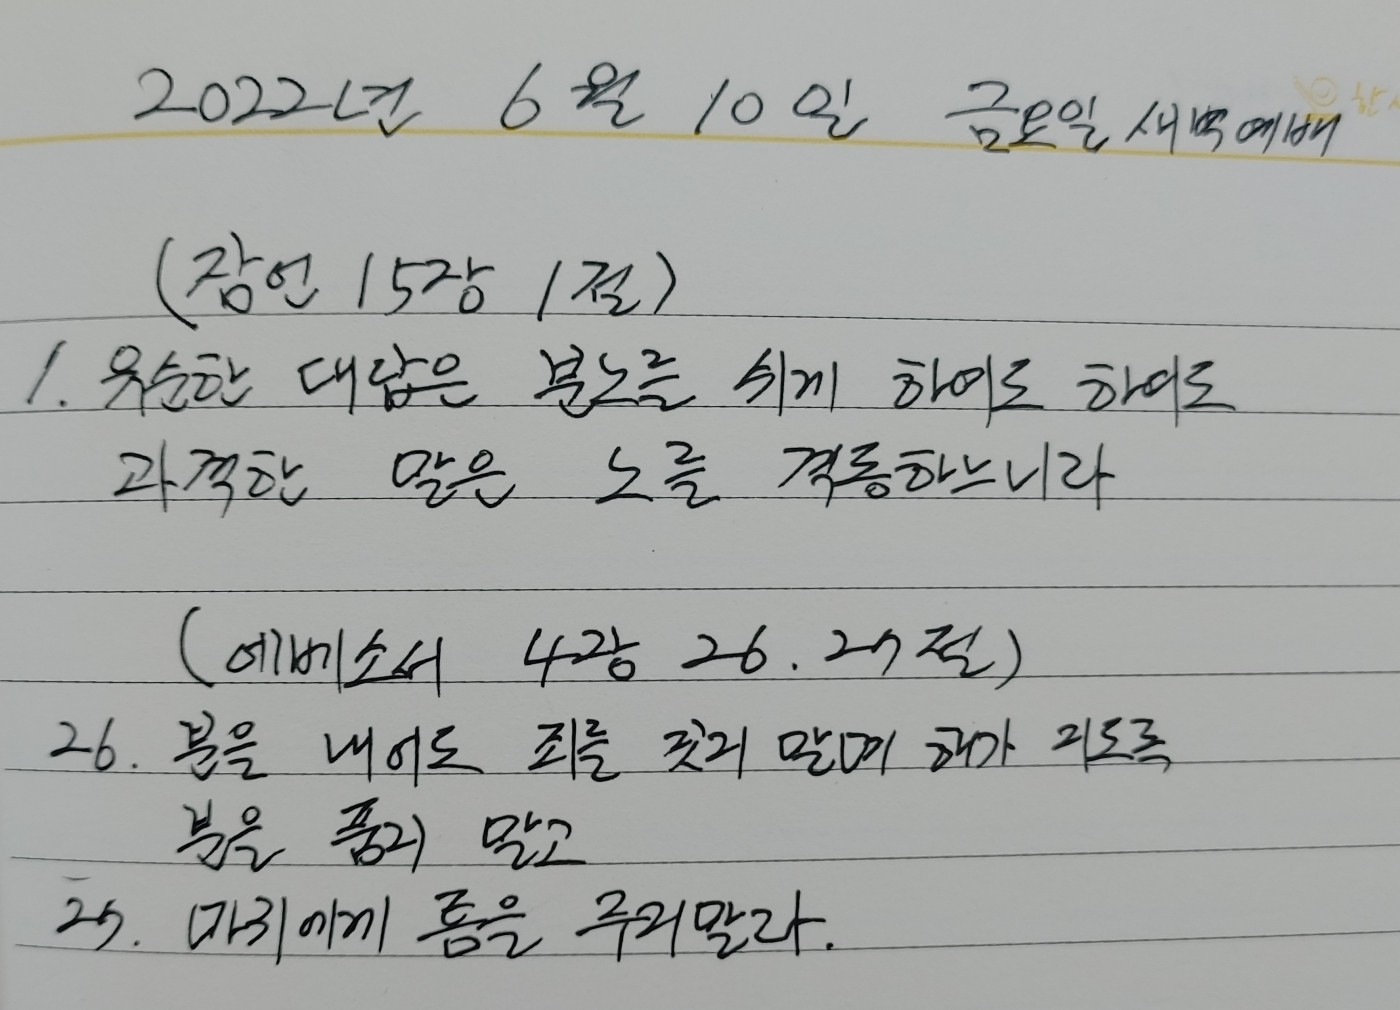 2022년 6월 10일 금요일 새벽예배
(잠언 15장 1절)
1. 유순한 대답은 분노를 쉬게 하여도 하여도
과격한 말은 노를 격동하느니라
(에베소서 4장 26. 27절)
26. 분을 내어도 죄를 짓지 말며 해가 지도록
분을 품지 말고
27. 마귀에게 틈을 주지말라.